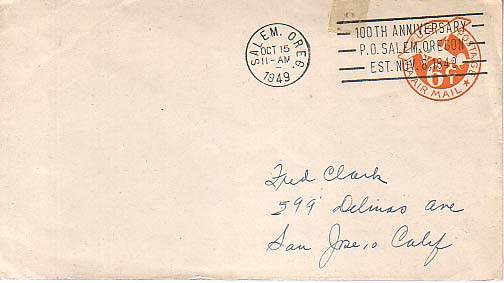 SALEM, OREG.
OCT 15
11-AM
1949
100TH ANNIVERSARY
P.O. SALEM, OREGON
EST. NOV. 8, 1849
POSTAGE
6¢
AIR MAIL
Fred Clark
599 Delmas Ave
San Jose, Calif